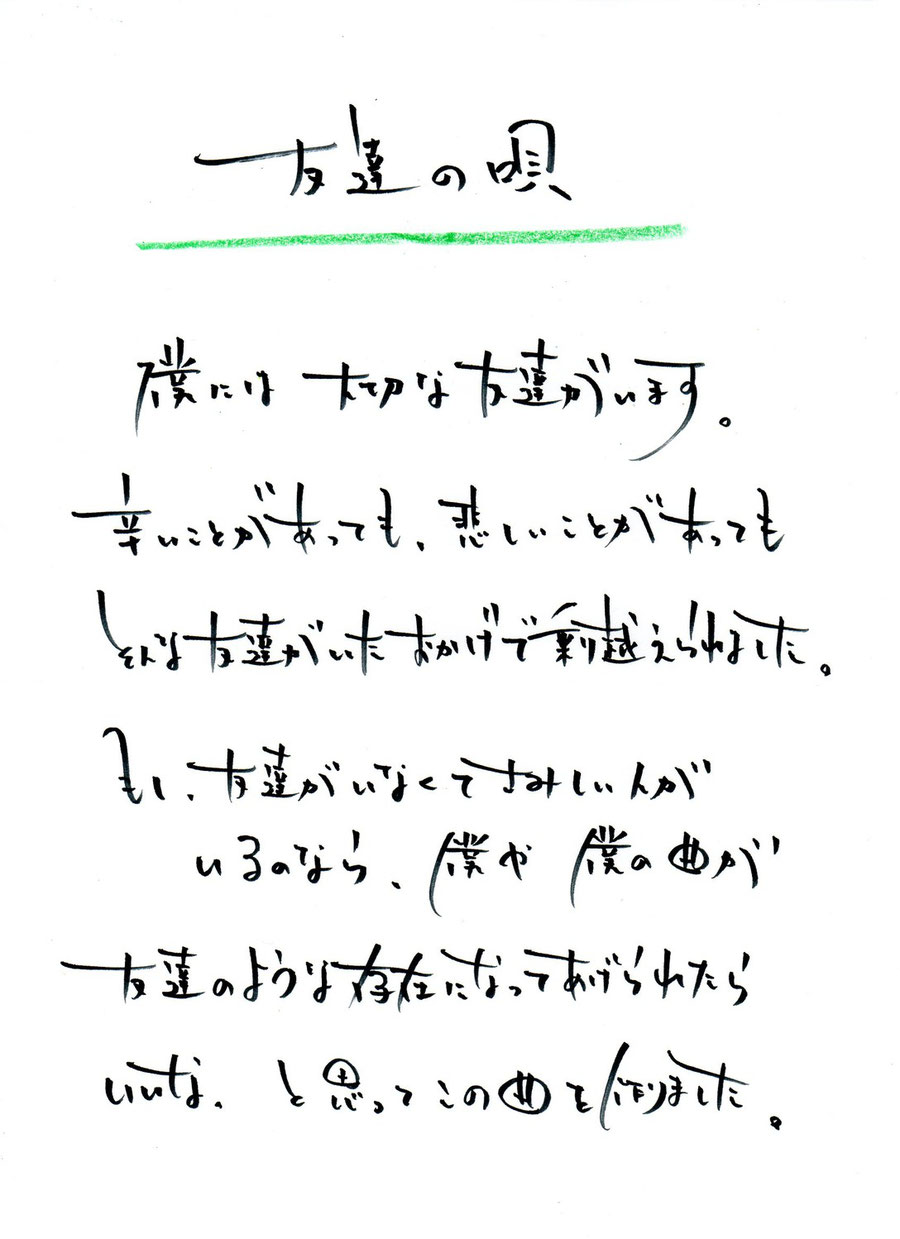 友達の唄
僕には 大切な友達がいます。
辛いことがあっても、悲しいことがあっても
そんな友達がいたおかげで乗り越えられました。
もし、友達がいなくてさみしい人が
いるのなら、僕や 僕の曲が
友達のような存在になってあげられたら
いいな、と思ってこの曲を作りました。